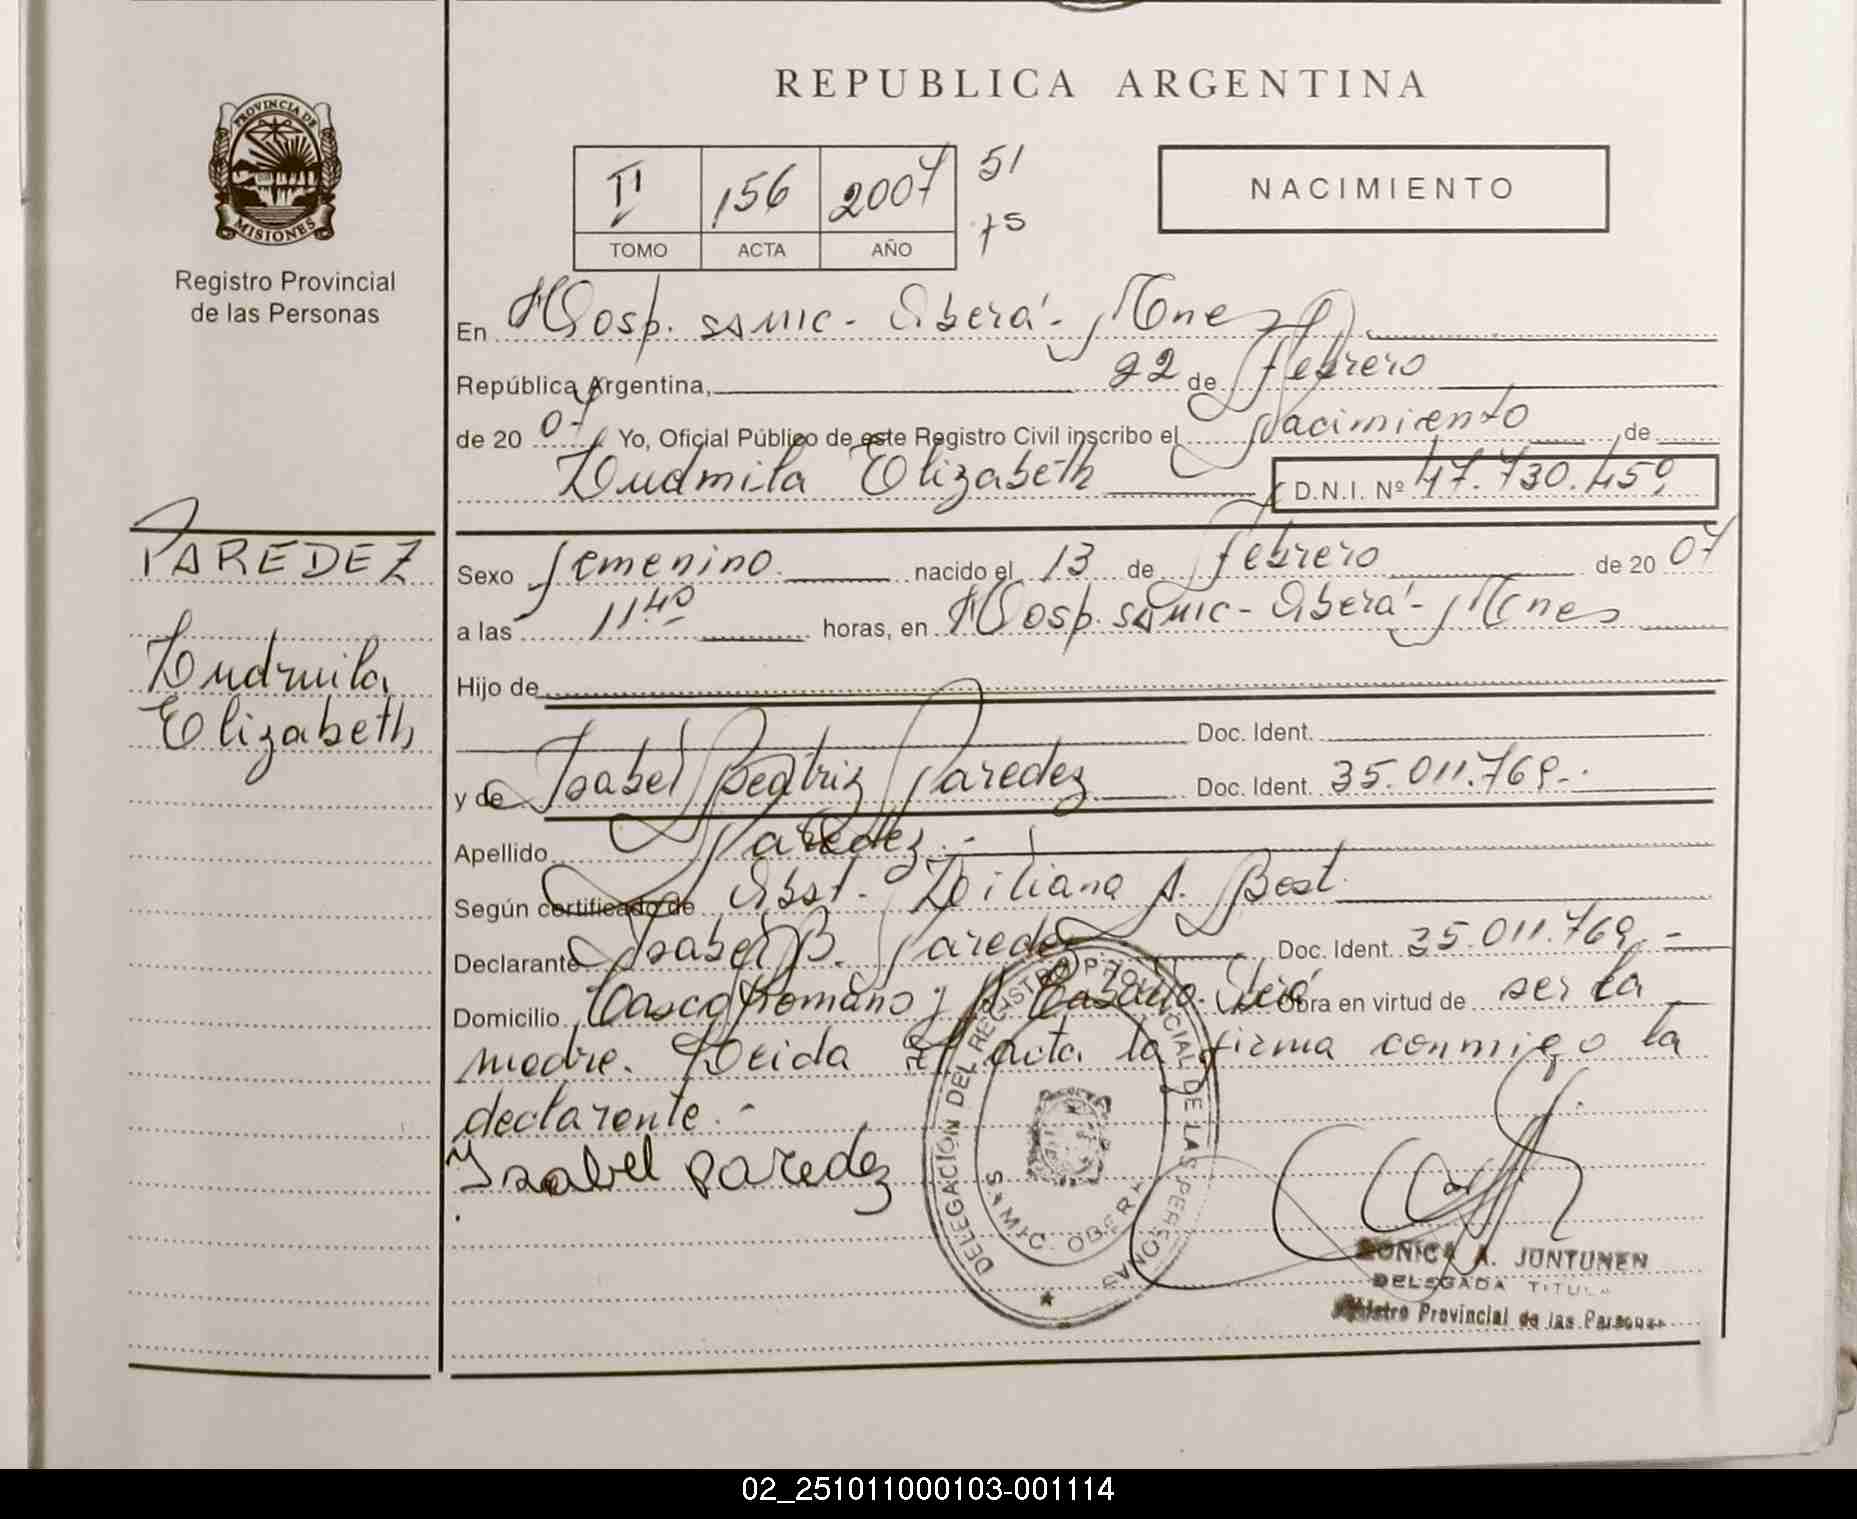 REPUBLICA ARGENTINA
PROVINCIA DE MISIONES
Registro Provincial
de las Personas
II 156 2007 51
TOMO ACTA AÑO 75
NACIMIENTO
En Hosp. SAMIC - Oberá - Mnes
República Argentina, 22 de febrero
de 20 07 Yo, Oficial Público de este Registro Civil inscribo el Nacimiento de
Ludmila Elizabeth D.N.I. Nº 47.730.459
PAREDEZ
Ludmila
Elizabeth
Sexo femenino nacido el 13 de febrero de 20 07
a las 11:40 horas, en Hosp. SAMIC - Oberá - Mnes
Hijo de
Doc. Ident.
y de Isabel Beatriz Paredez Doc. Ident. 35.011.769.-
Apellido Paredez.-
Según certificado de Obst. Liliana A. Best.
Declarante Isabel B. Paredez Doc. Ident. 35.011.769.-
Domicilio Obra en virtud de ser la
madre. Leida el acta la firma conmigo la
declarante.-
Isabel paredez
DELEGACIÓN DEL REGISTRO PROVINCIAL DE LAS PERSONAS
SAMIC. OBERA
MONICA A. JUNTUNEN
DELEGADA TITULAR
Registro Provincial de las Personas
02_251011000103-001114